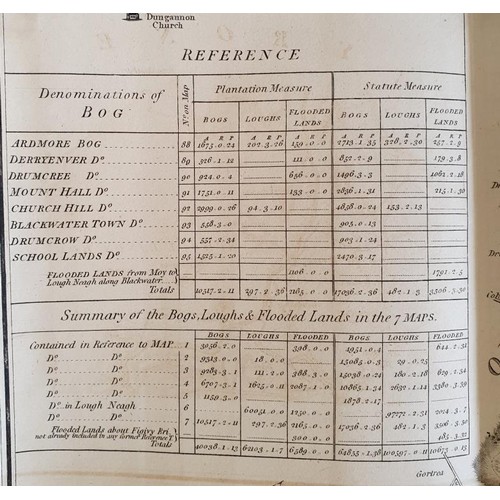 Dungannon
Church
REFERENCE
Denominations of
BOG
No. on Map
Plantation Measure
Statute Measure
BOGS LOUGHS FLOODED LANDS BOGS LOUGHS FLOODED LANDS
A R P A R P A R P A R P A R P A R P
ARDMORE BOG 88 1675.0.24 202.3.26 159.0.0 2713.1.35 328.2.30 257.2.9
DERRYENVER Do. 89 526.1.12 111.0.0 852.2.9 179.3.8
DRUMCREE Do. 90 924.0.4 656.0.0 1496.3.3 1062.2.18
MOUNT HALL Do. 91 1751.0.11 133.0.0 2836.1.31 215.1.36
CHURCH HILL Do. 92 2999.0.26 94.3.10 4858.0.24 153.2.13
BLACKWATER TOWN Do. 93 558.3.0 905.0.13
DRUMCROW Do. 94 557.2.34 903.1.24
SCHOOL LANDS Do. 95 1525.1.20 2470.3.17
FLOODED LANDS from Moy to
Lough Neagh along Blackwater 1106.0.0 1791.2.5
Totals 10517.2.11 297.2.36 2165.0.0 17036.2.36 482.1.3 3506.3.30
Summary of the Bogs, Loughs & Flooded Lands in the 7 MAPS.
BOGS LOUGHS FLOODED BOGS LOUGHS FLOODED
Contained in Reference to MAP 1 3056.2.0 398.0.0 4951.0.4 644.2.31
Do. Do. 2 9313.0.0 18.0.0 15085.0.2 29.0.25
Do. Do. 3 9283.3.1 111.2.0 388.3.0 15038.0.24 180.2.18 629.2.34
Do. Do. 4 6707.3.1 1625.0.11 2087.1.0 10865.1.34 2632.1.14 3380.3.39
Do. Do. 5 1159.3.0 1878.2.17
Do. in Lough Neagh 6 60051.0.0 1250.0.0 97272.2.31 2024.3.7
Do. Do. 7 10517.2.11 297.2.36 2165.0.0 17036.2.36 482.1.3 3506.3.30
Flooded Lands about
not already included in any former Reference 300.0.0 485.3.32
Totals 40038.1.13 62103.1.7 6589.0.0 64855.1.38 100597.0.11 10673.0.15
Gortrea